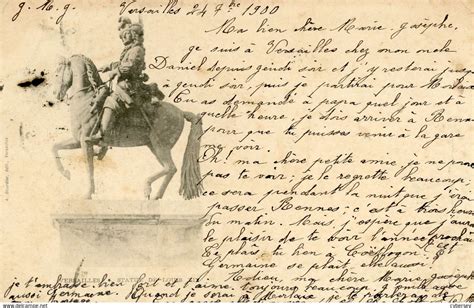 J. M. J. Versailles 24 7bre 1900
Ma bien chère Marie-Josèphe,
je suis à Versailles chez mon oncle
Daniel depuis jeudi soir et j'y resterai jusqu'à
jeudi soir, puis je partirai pour
Tu as demandé à papa quel jour et à
quelle heure, je dois arriver à Rennes
pour que tu puisses venir à la gare
me voir.
Oh! ma chère petite amie je ne
pas te voir, je le regrette beaucoup
ce sera pendant la nuit que j'irai
passer Rennes; c'est à trois heures
du matin. Mais j'espère que j'aurai
le plaisir de te voir l'année prochaine
Te plais tu bien à
Germaine se plaît
Adieu ma chère Marie-Josèphe
je t'embrasse bien fort et j'aime
aussi Germaine. Quand je serai à
VERSAILLES LOUIS XIV